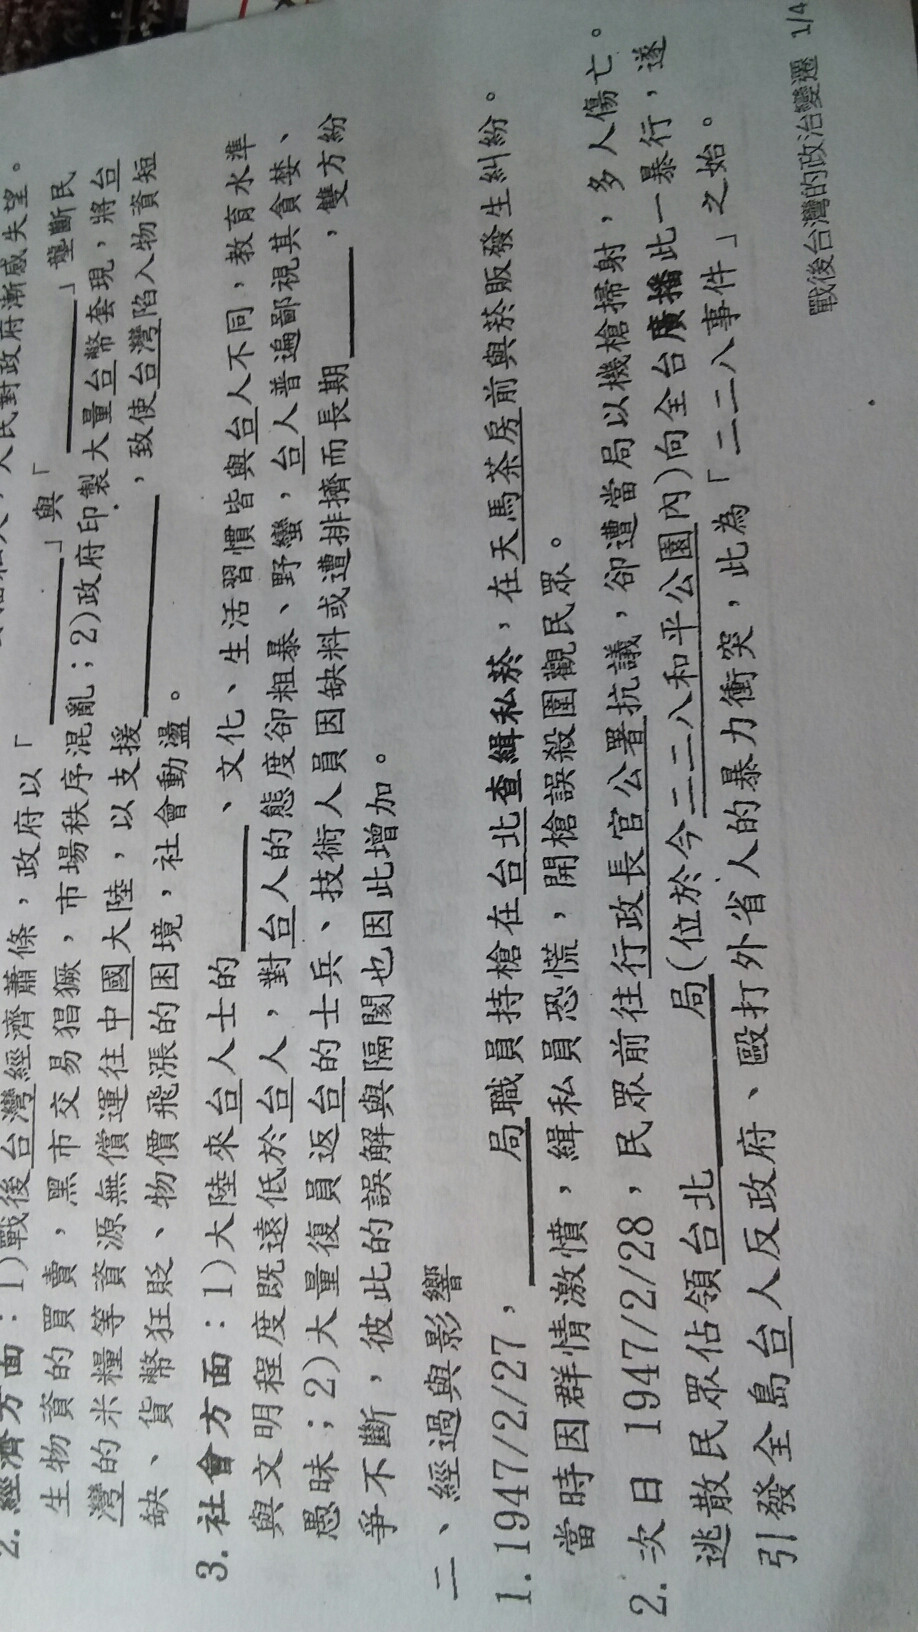 人民對政府漸感失望。
2. 經濟方面：1)戰後台灣經濟蕭條，政府以「＿＿＿＿」與「＿＿＿＿」壟斷民
生物資的買賣，黑市交易猖獗，市場秩序混亂；2)政府印製大量台幣套現，將台
灣的米糧等資源無償運往中國大陸，以支援＿＿＿＿＿＿，致使台灣陷入物資短
缺、貨幣狂貶、物價飛漲的困境，社會動盪。
3. 社會方面：1)大陸來台人士的＿＿＿＿、文化、生活習慣皆與台人不同，教育水準
與文明程度既遠低於台人，對台人的態度卻粗暴、野蠻，台人普遍鄙視其貪婪、
愚昧；2)大量復員返台的士兵、技術人員因缺料或遭排擠而長期＿＿＿＿，雙方紛
爭不斷，彼此的誤解與隔閡也因此增加。
二、經過與影響
1. 1947/2/27，＿＿＿＿局職員持槍在台北查緝私菸，在天馬茶房前與菸販發生糾紛。
當時因群情激憤，緝私員恐慌，開槍誤殺圍觀民眾。
2. 次日 1947/2/28，民眾前往行政長官公署抗議，卻遭當局以機槍掃射，多人傷亡。
逃散民眾佔領台北＿＿＿＿局(位於今二二八和平公園內)向全台廣播此一暴行，遂
引發全島台人反政府、毆打外省人的暴力衝突，此為「二二八事件」之始。
戰後台灣的政治變遷 1/4